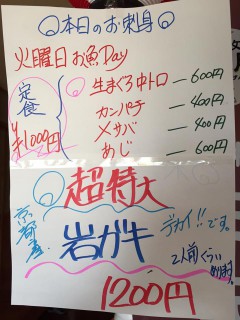 本日のお刺身
火曜日 お魚Day
定食
¥1000円
生まぐろ中トロ — 600円
カンパチ — 400円
〆サバ — 400円
あじ — 600円
超特大
京都産
岩ガキ
デカイ!!です。
2人前くらい
1200円